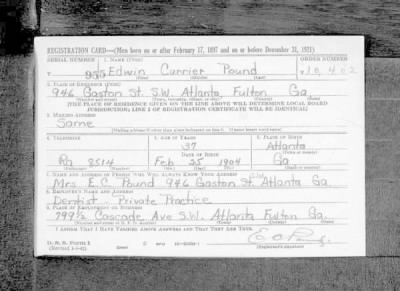 REGISTRATION CARD—(Men born on or after February 17, 1897 and on or before December 31, 1921)
SERIAL NUMBER 1. NAME (Print) ORDER NUMBER
955 Edwin Currier Pound 10,402
(First) (Middle) (Last)
2. PLACE OF RESIDENCE (Print)
946 Gaston St. S.W. Atlanta, Fulton Ga
(Number and street) (Town, township, village, or city) (County) (State)
[THE PLACE OF RESIDENCE GIVEN ON THE LINE ABOVE WILL DETERMINE LOCAL BOARD
JURISDICTION; LINE 2 OF REGISTRATION CERTIFICATE WILL BE IDENTICAL]
3. MAILING ADDRESS
Same
[Mailing address if other than place indicated on line 2. If same insert word same]
4. TELEPHONE 5. AGE IN YEARS 6. PLACE OF BIRTH
37 Atlanta
DATE OF BIRTH (Town or county)
Ra 2514 Feb 25 1904 Ga
(Exchange) (Number) (Mo.) (Day) (Yr.) (State or country)
7. NAME AND ADDRESS OF PERSON WHO WILL ALWAYS KNOW YOUR ADDRESS
Mrs. E.C. Pound 946 Gaston St. Atlanta Ga
8. EMPLOYER'S NAME AND ADDRESS
Dentist - Private Practice
9. PLACE OF EMPLOYMENT OR BUSINESS
799½ Cascade Ave S.W. Atlanta Fulton Ga.
(Number and street or R. F. D. number) (Town) (County) (State)
I AFFIRM THAT I HAVE VERIFIED ABOVE ANSWERS AND THAT THEY ARE TRUE.
D. S. S. Form 1
(Registrant's signature)